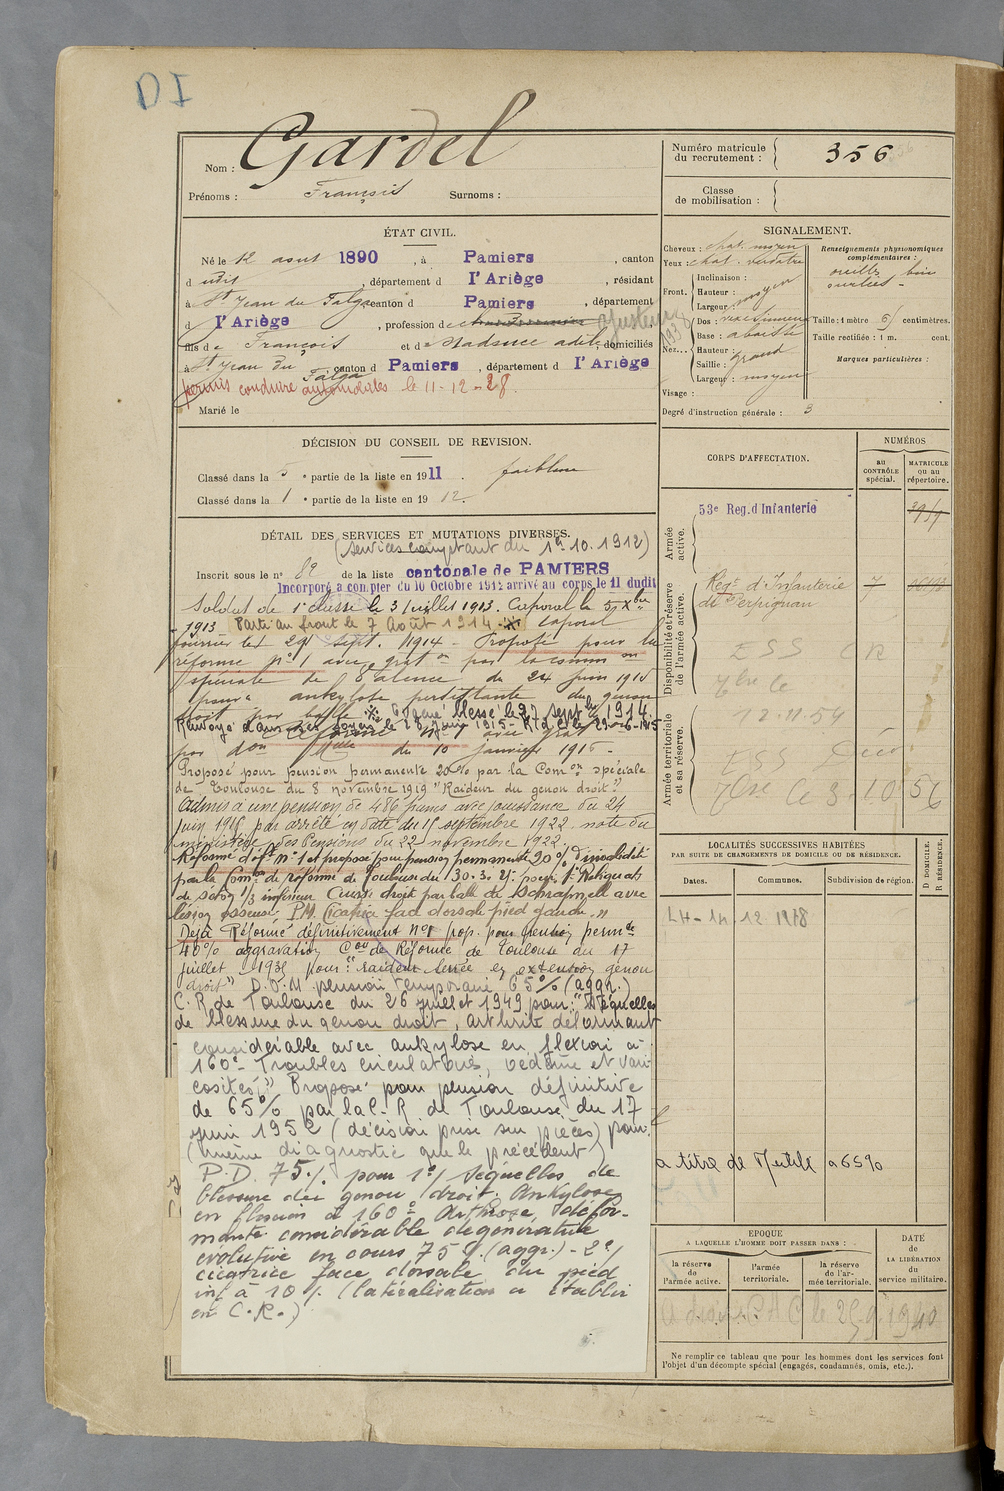 DI
Nom : Gardel
Prénoms : François Surnoms :
ÉTAT CIVIL.
Né le 12 aout 1890, à Pamiers, canton
d udit, département d l'Ariège, résidant
à St Jean du Falga canton d Pamiers, département
d l'Ariège, profession de ajusteur
fils de François et de domiciliés
à St Jean du Falga, canton d Pamiers, département d l'Ariège
permis conduire automobiles le 11-12-28.
Marié le
DÉCISION DU CONSEIL DE REVISION.
Classé dans la 5e partie de la liste en 1911. faiblesse
Classé dans la 1e partie de la liste en 1912.
DÉTAIL DES SERVICES ET MUTATIONS DIVERSES.
(Services comptant du 1er 10. 1912)
Inscrit sous le n° 82 de la liste cantonale de PAMIERS
Incorporé à compter du 10 Octobre 1912 arrivé au corps le 11 dudit
Soldat de 1e classe le 3 juillet 1913. Caporal le 5 Xbre
1913 Parti au front le 7 Août 1914 caporal
fourrier le 29 sept. 1914 - Proposé pour la
réforme n° 1 avec grat on par la comm on
spéciale de Valence du 24 juin 1915
pour ankylose persistante du genou
droit par balle blessé le 27 sept bre 1914
Renvoyé dans ses foyers le 28 juin 1915
par d on du 10 janvier 1916 -
Proposé pour pension permanente 20% par la Com on spéciale
de Toulouse du 8 novembre 1919 "Raideur du genou droit"
Admis à une pension de 486 francs avec jouissance du 24
juin 1915 par arrêté en date du 15 septembre 1922 note du
ministère des Pensions du 22 novembre 1922.
Réformé déf n° 1 et proposé pour pension permanente 20% d'invalidité
par la Com on de réforme de Toulouse du 30.3.25 pour 1° Reliquats
de séton 1/3 inférieur cuisse droite par balle de schrapnell avec
lésion osseuse. P.M. Cicatrice face dorsale pied gauche "
Déjà Réformé définitivement n° 1 prop. pour pension perm te
40% aggravation C on de Réforme de Toulouse du 17
juillet 1935 pour "raideur serrée en extension genou
droit" pension temporaire 65% (aggr.)
C.R de Toulouse du 26 juillet 1949 pour "Séquelles
de blessure du genou droit, arthrite déformante
considérable avec ankylose en flexion à
160° - Troubles circulatoires, oedème et vari-
cosités". Proposé pour pension définitive
de 65% par la C.R de Toulouse du 17
juin 1952 (décision prise sur pièces) pour
(même diagnostic que le précédent)
P.D. 75% pour 1°/ Séquelles de
blessure du genou droit. Ankylose
en flexion à 160° Arthrose défor-
mante considérable dégénérative
évolutive en cours 75% (aggr.) - 2°/
cicatrice face dorsale du pied
inf à 10% (latéralisation à établir
en C.R.)
Numéro matricule du recrutement : 356
Classe de mobilisation :
SIGNALEMENT.
Cheveux : chat. moyen
Yeux : chat. verdâtre
Front. Inclinaison :
Hauteur : moyen
Largeur
Nez... Dos : rect. sinueux
Base : abaissée
Hauteur :
Saillie : grand
Largeur : moyen
Visage :
Renseignements physionomiques complémentaires :
oreilles bien
ourlées -
Taille : 1 mètre 61 centimètres.
Taille rectifiée : 1 m. cent.
Marques particulières :
Degré d'instruction générale : 3
CORPS D'AFFECTATION.
NUMÉROS
AU CONTRÔLE spécial.
MATRICULE ou au répertoire.
Armée active.
53e Reg. d'Infanterie
Disponibilité et réserve de l'armée active.
Régt d'Infanterie 7
de Perpignan
ESS
Armée territoriale et sa réserve.
12.11.54
ESS Déco
7bre le 3.10.56
LOCALITÉS SUCCESSIVES HABITÉES
PAR SUITE DE CHANGEMENTS DE DOMICILE OU DE RÉSIDENCE.
Dates. Communes. Subdivision de région.
D DOMICILE. R RÉSIDENCE.
à titre de Mutilé à 65%
EPOQUE
A LAQUELLE L'HOMME DOIT PASSER DANS :
la réserve de l'armée active.
l'armée territoriale.
la réserve de l'armée territoriale.
DATE de LA LIBÉRATION du service militaire.
le 25-9 1940
Ne remplir ce tableau que pour les hommes dont les services font
l'objet d'un décompte spécial (engagés, condamnés, omis, etc.).